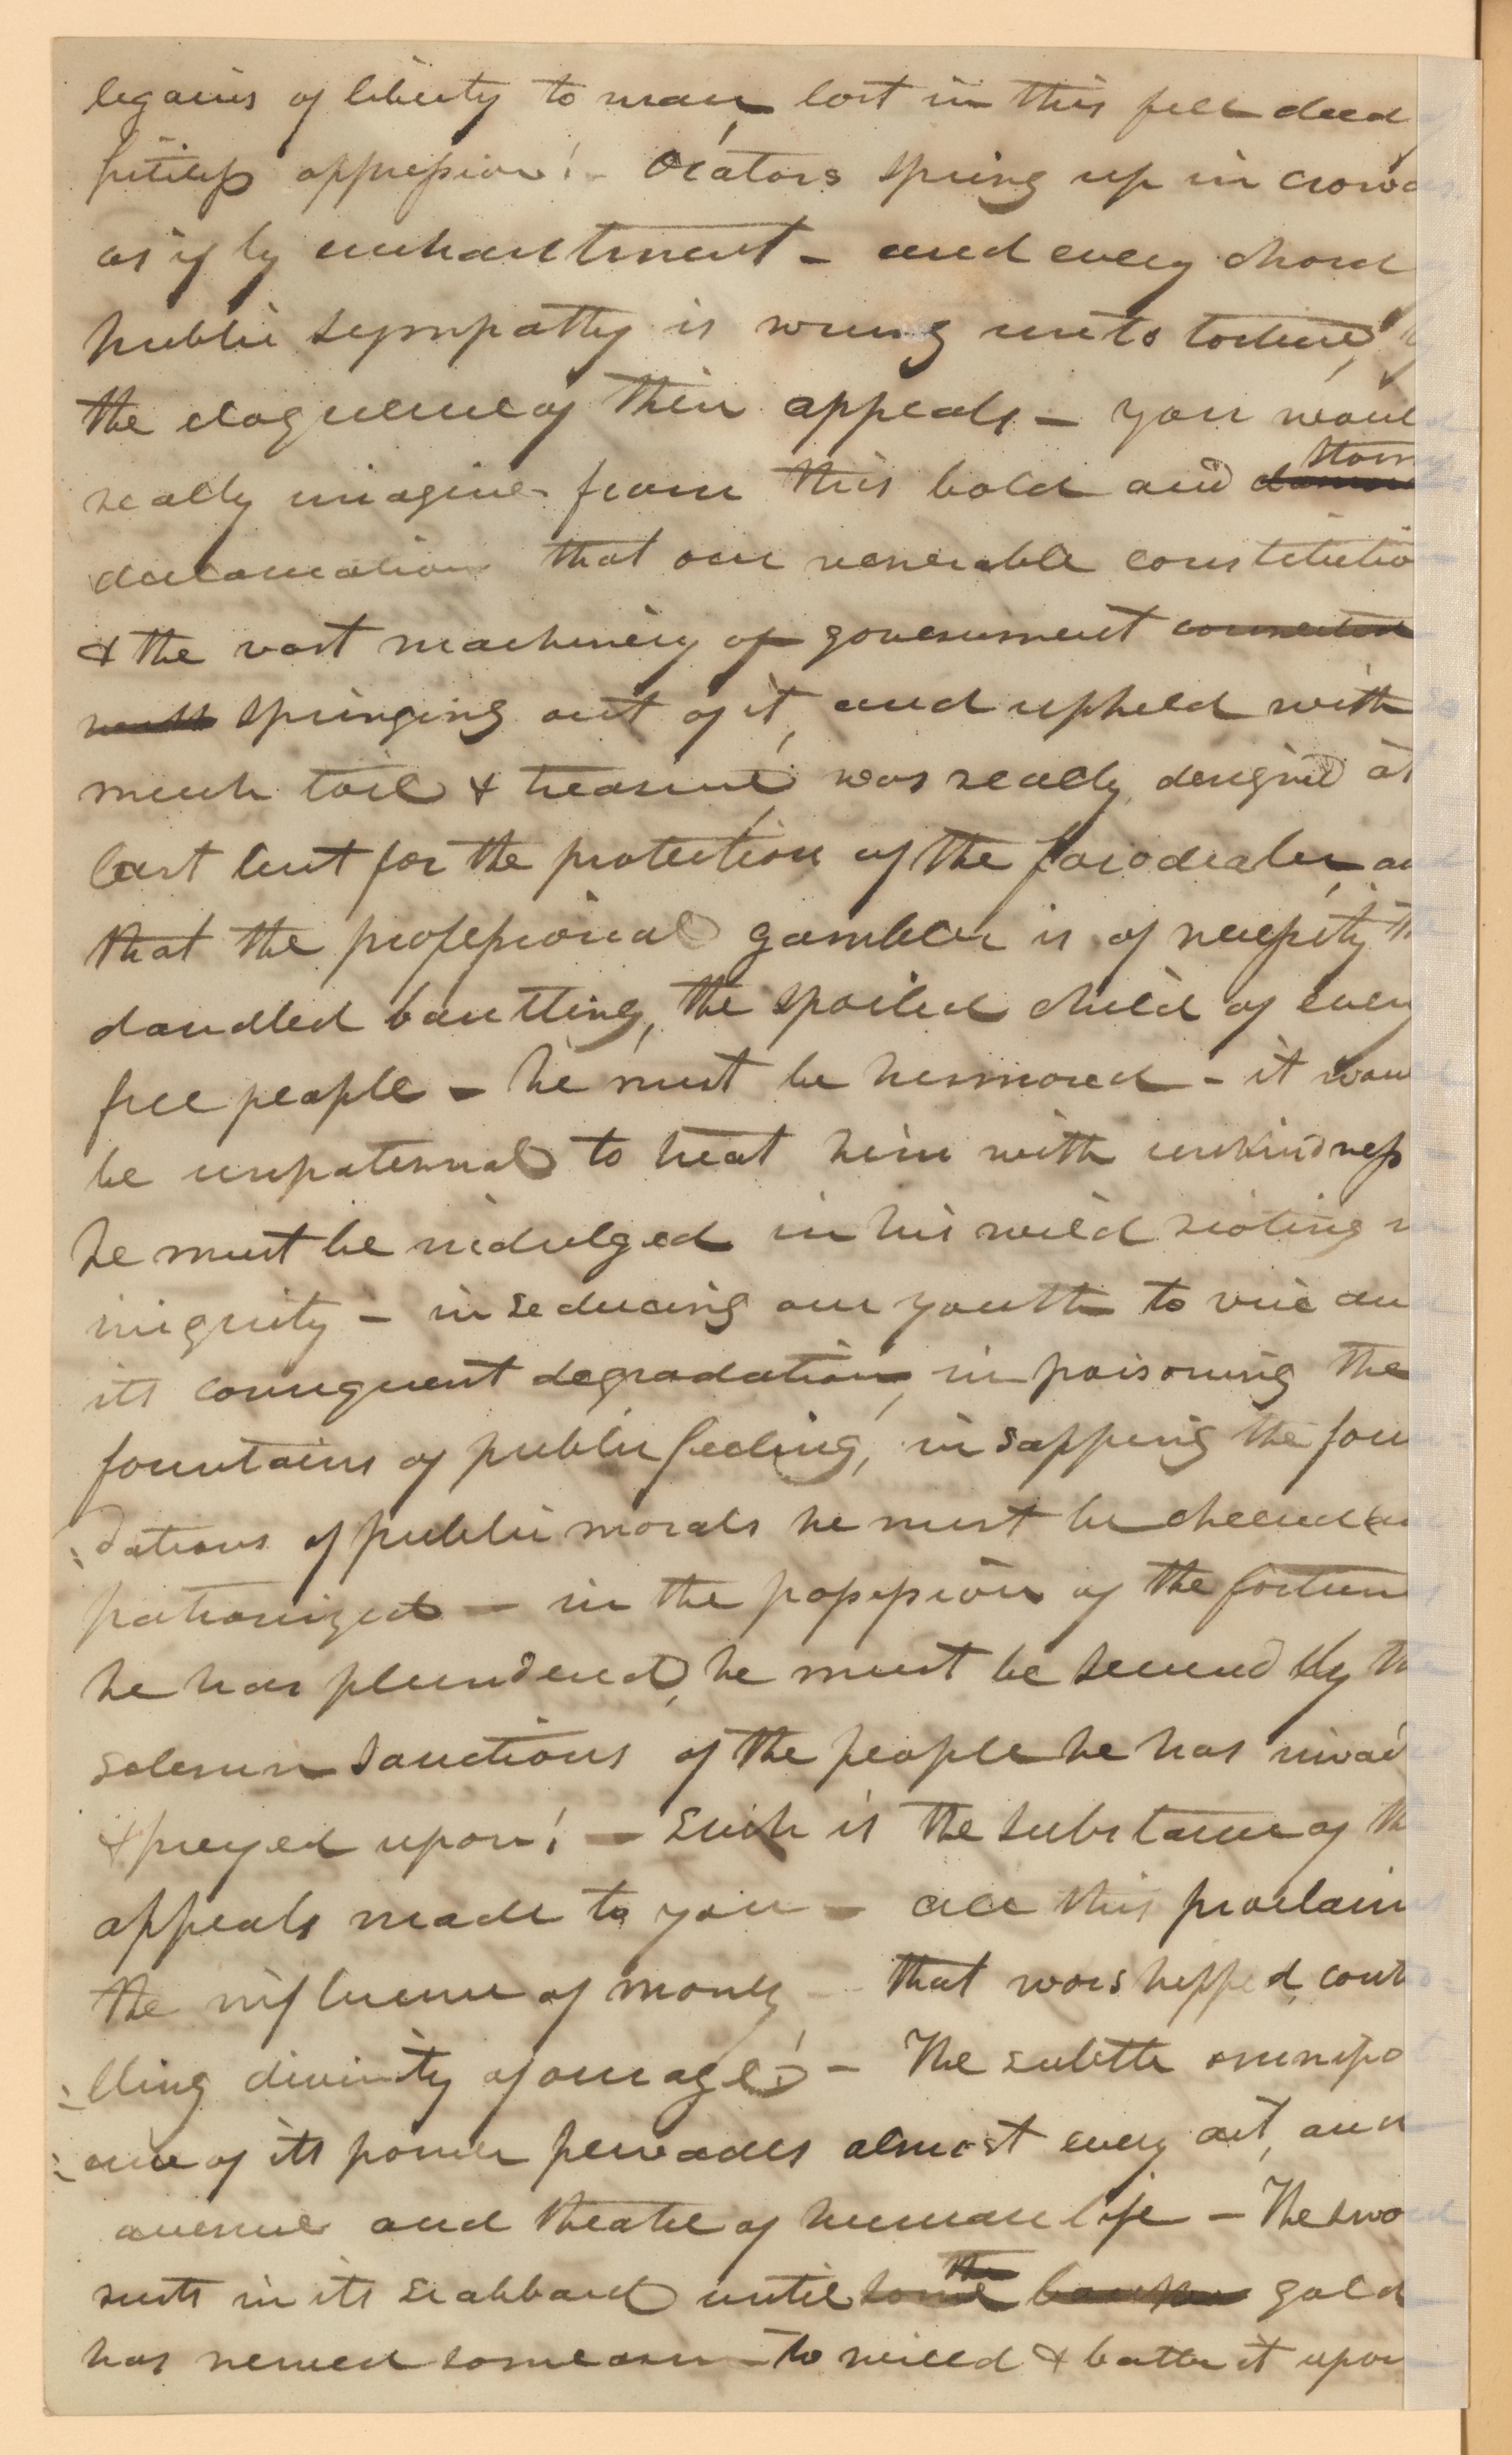 legacies of liberty to man, lost in this fell deed
pitiless oppression! - Orators spring up in crowds
as if by enchantment - and every chord
public sympathy is wrung unto torture, by
the eloquence of their appeals - you would
really imagine from this bold and stormy
declamation that our venerable constitutio
& the vast machinery of government connected
with springing out of it, and upheld with so
much toil & treasure, was really designed at
last but for the protection of the farodealer, and
that the professional gambler is of necessity the
dandled bantling, the spoiled child of every
free people - he must be humored - it would
be unpaternal to treat him with unkindness
he must be indulged in his wild rioting in
iniquity - in seducing our youth to vice and
its consequent degradation, in poisoning the
fountains of public feeling, in sapping the foun
dations of public morals he must be cheered and
patronized - in the possession of the fortunes
he has plundered, he must be secured by the
solemn sanctions of the people he has invaded
& preyed upon! - Such is the substance of the
appeals made to you - all this proclaims
the influence of money - that worshipped, contro-
lling divinity of our age! - The subtle omnipot
ence of its power pervades almost every art, and
avenue and theatre of human life - The sword
rests in its scabbard until some the gold
has nerved some arm to wield & batter it upon